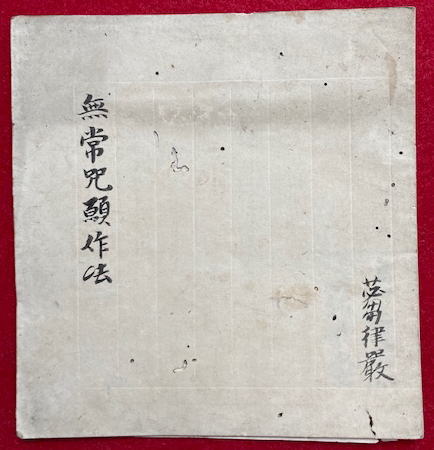 無常咒願作法
苾蒭律嚴